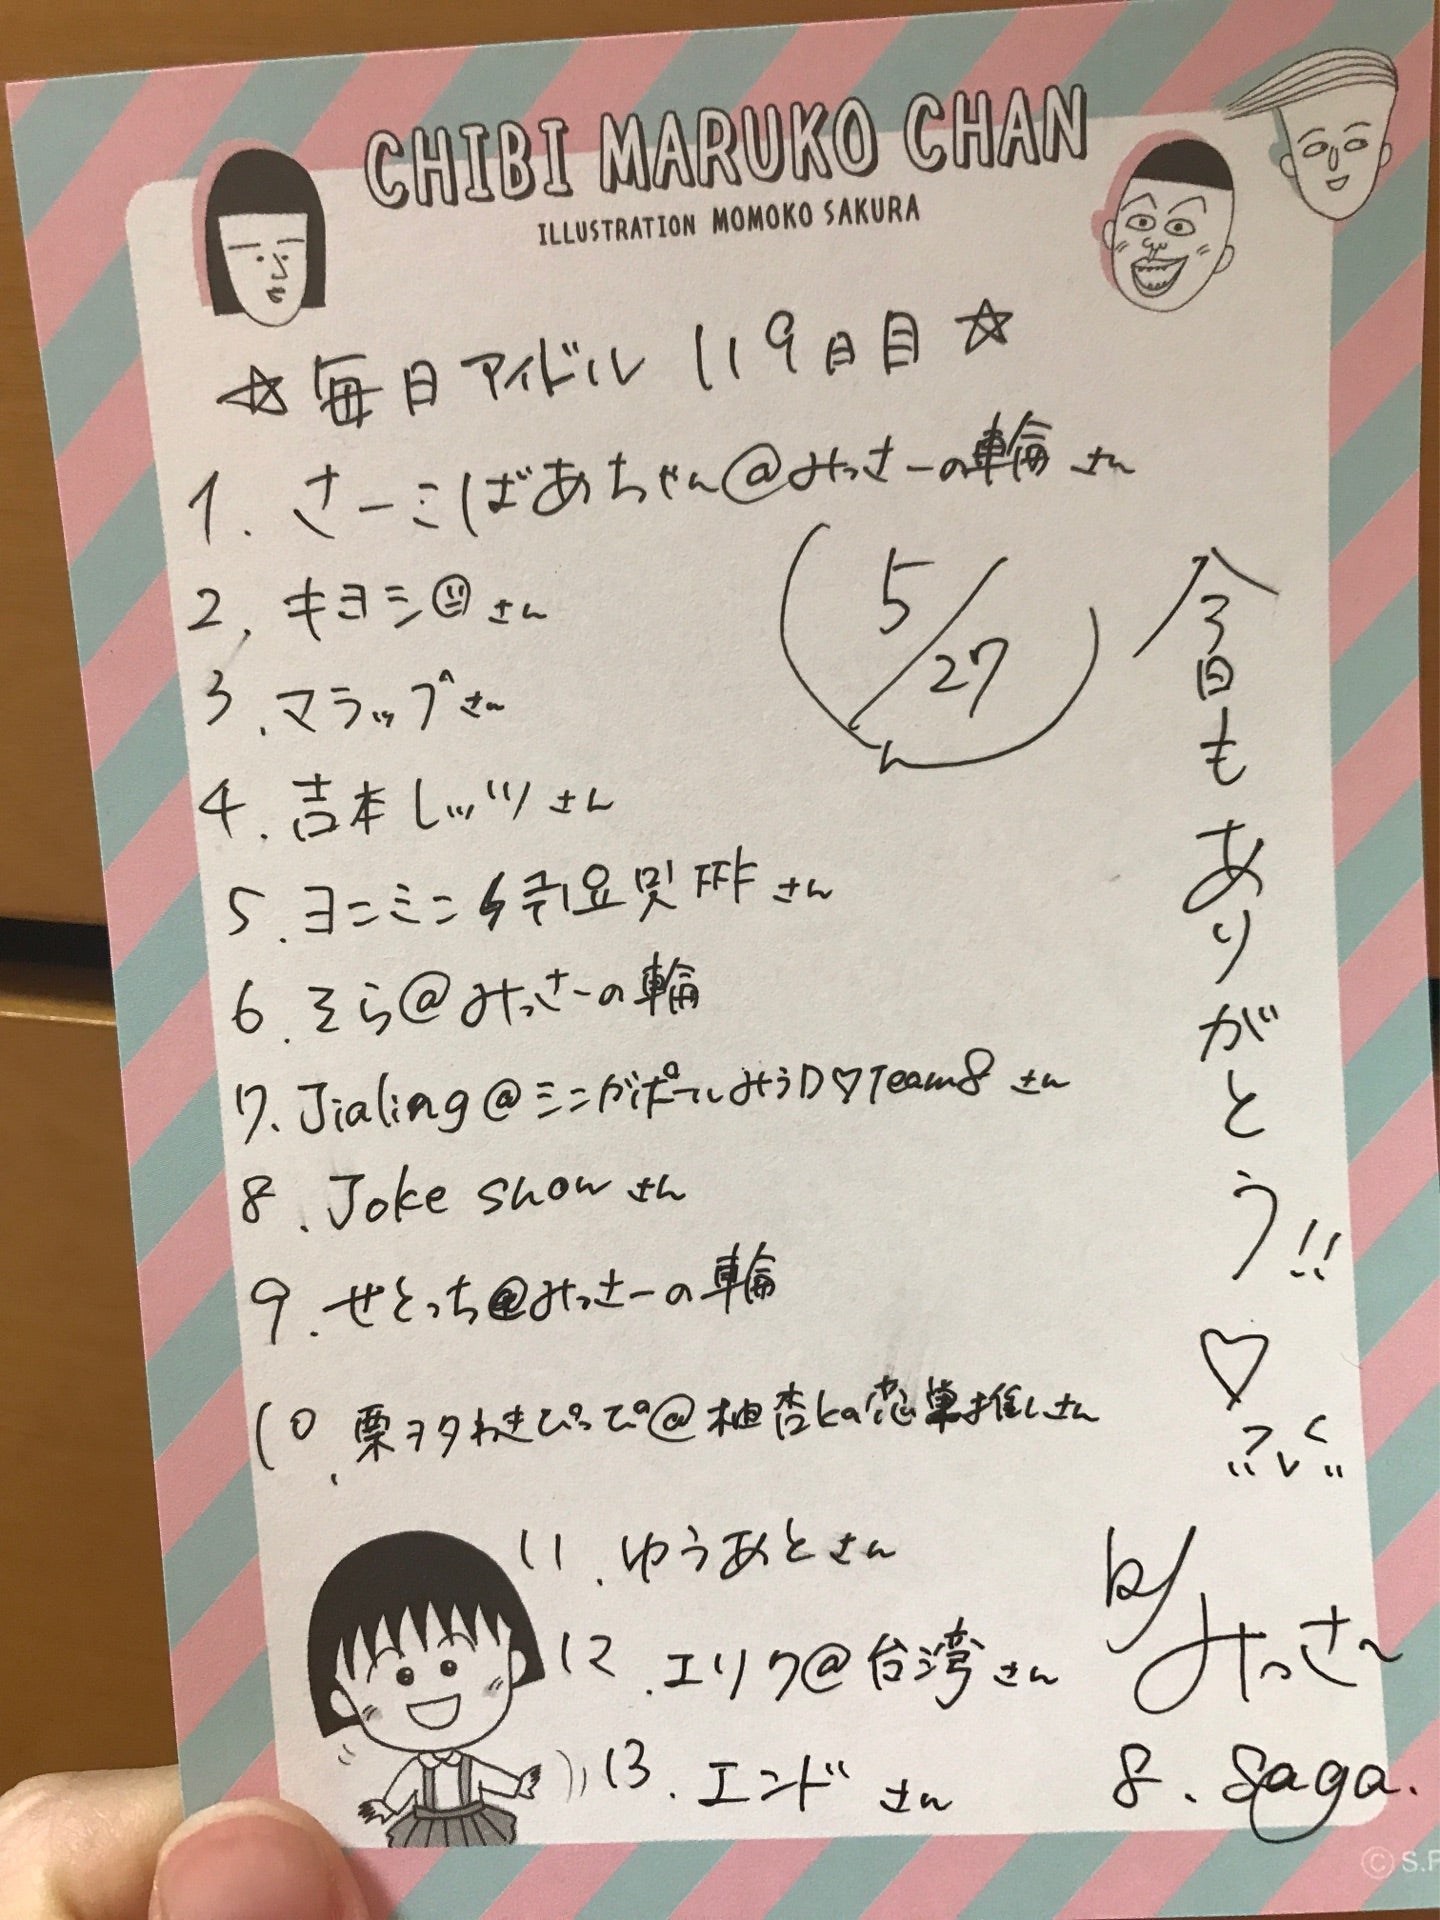 CHIBI MARUKO CHAN
ILLUSTRATION MOMOKO SAKURA
☆毎日アイドル 119日目☆
1. さーこばあちゃん@みっさーの輪さん
2. キヨシさん
3. マラップさん
4. 吉本レッツさん
5. ヨニミニ さん
6. そら@みっさーの輪
7. Jialing@シンガポールみうD♡Team8 さん
8. Joke show さん
9. せとっち@みっさーの輪
10. 栗ヲタわきぴっぴ@柚杏ka恋巣推しさん
11. ゆうあとさん
12. エリク@台湾さん
13. エンドさん
5/27
今日もありがとう!!♡
by みっさー
8. Saga.
© S.P